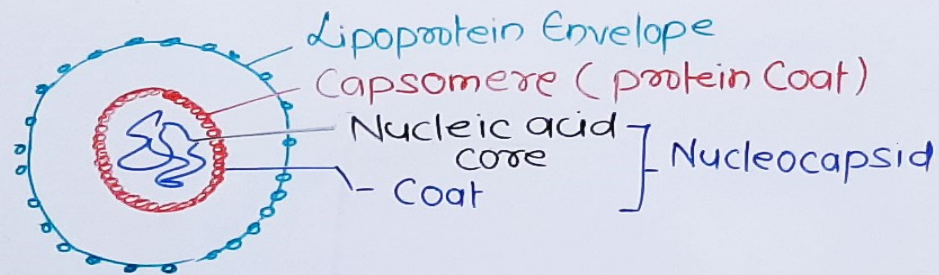 Lipoprotein Envelope
Capsomere ( protein Coat)
Nucleic acid
core
- Coat
Nucleocapsid